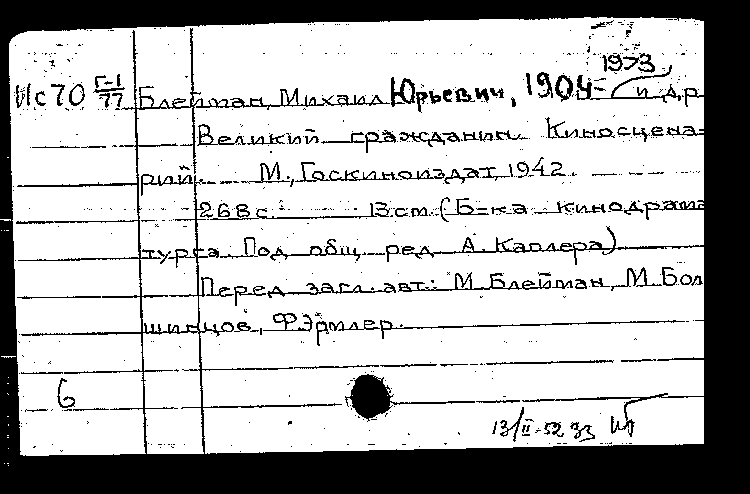 1973
Ис70 Г-1/77 Блейман, Михаил Юрьевич, 1904- и др
Великий гражданин. Киносцена-
рий. М., Госкиноиздат, 1942.
268 с. 13 cm. (Б-ка кинодрама
турга. Под общ. ред. А. Каплера)
Перед загл. авт.: М. Блейман, М. Бол
шинцов, Ф. Эрмлер.
6
13/II-52